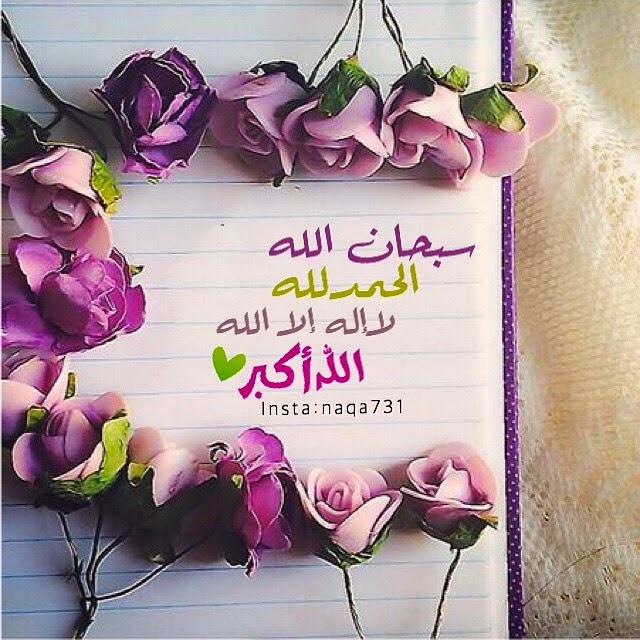 سبحان الله
الحمدلله
لاإله إلا الله
الله أكبر
Insta:naqa731